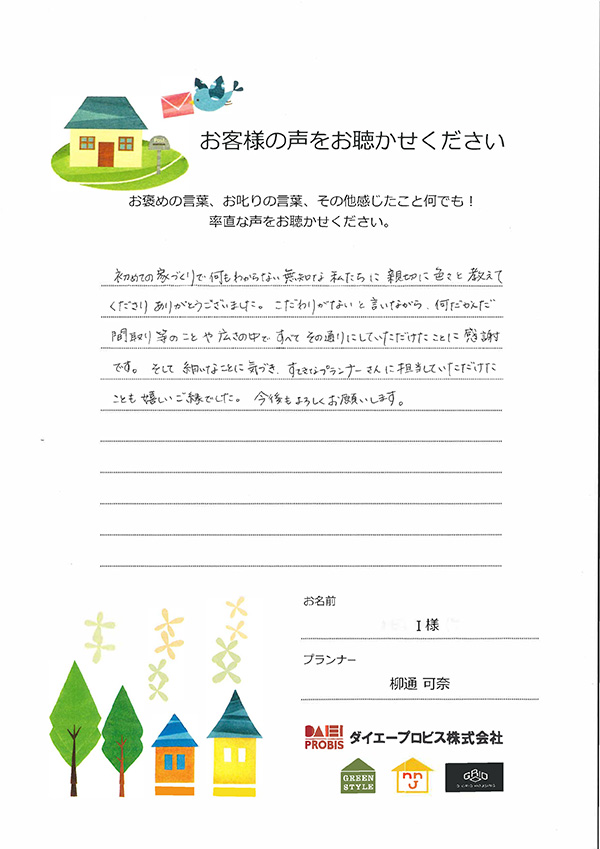 お客様の声をお聴かせください
お褒めの言葉、お叱りの言葉、その他感じたこと何でも！
率直な声をお聴かせください。
初めての家づくりで何もわからない無知な私たちに親切に色々と教えて
くださりありがとうございました。こだわりがないと言いながら、何だかんだ
間取り等のことや広さの中ですべてその通りにしていただけたことに感謝
です。そして細いなことに気づき、すてきなプランナーさんに担当していただけた
ことも嬉しいご縁でした。今後もよろしくお願いします。
お名前
I 様
プランナー
柳通 可奈
DAIEI
PROBIS
ダイエープロビス株式会社
GREEN
STYLE